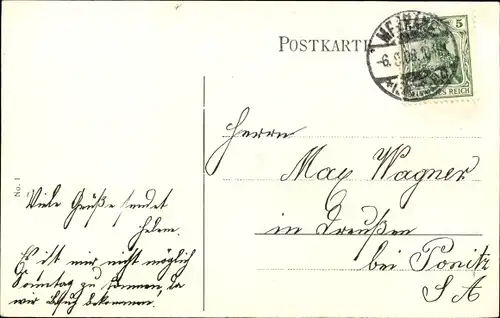 POSTKARTE
5
DEUTSCHES REICH
No. 1
Herrn
Max Wagner
in Dreußen
bei Ponitz
S A
Viele Grüße sendet
Helene.
Es ist mir nicht möglich
Sonntag zu kommen, da
wir Besuch bekommen.